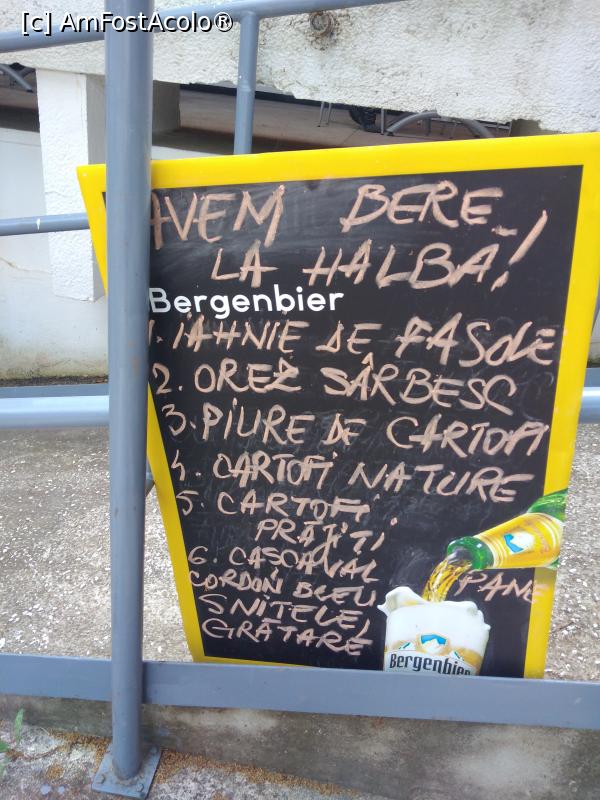 [c] AmFostAcolo®
AVEM BERE
LA HALBA!
Bergenbier
1. IAHNIE DE FASOLE
2. OREZ SÂRBESC
3. PIURE DE CARTOFI
4. CARTOFI NATURE
5. CARTOFI
PRĂJIȚI
6. CASCAVAL PANE
CORDON BLEU,
ȘNIȚELE,
GRĂTARE
Bergenbier